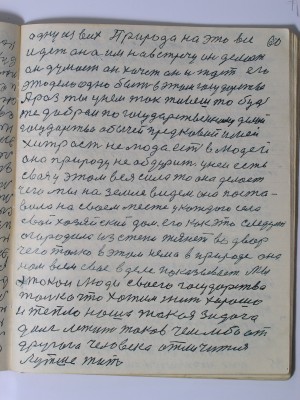 60
одну из вих Природа на это все
идет она им на встречу он делает
он думает он хочет он и ждет его
это дело одно быть в этом государстве
А раз ты у нем так живеш то буд
те добрым по государственному
государства обычей предковый и
хитрост не мода ест в людей
она природу не обдурит у неи есть
свои у этом вся сила то она делает
чего мы на земле видем она поста
вила на своем месте у каждого село
свой хозяйский дом его как это следует
огородило из степи тянет во двор
чего только в этом нема в природе она
нам всем свое в деле показывает Мы
такои люди своего государства
только что хотим жит хорошо
и тепло наша такая задача
дил лежит таков чем либо от
другога человека отличится
лутше жить